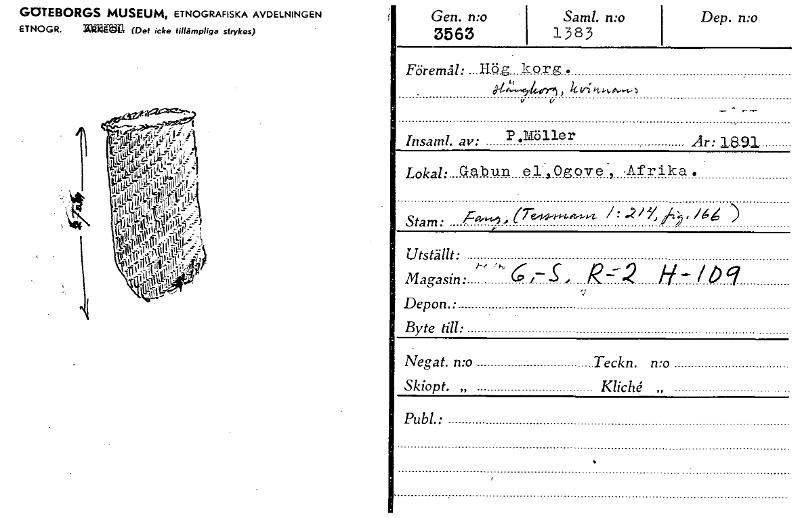 GÖTEBORGS MUSEUM, ETNOGRAFISKA AVDELNINGEN
ETNOGR. ARKEOL. (Det icke tillämpliga strykes)
Gen. n:o Saml. n:o Dep. n:o
3563 1383
Föremål: Hög korg.
hängkorg, kvinnans
Insaml. av: P.Möller År: 1891
Lokal: Gabun el, Ogove, Afrika.
Stam: Fang, (Tessmann 1:214, fig. 166)
Utställt:
Magasin: G,-S, R-2 H-109
Depon.:
Byte till:
Negat. n:o Teckn. n:o
Skiopt. „ Kliché „
Publ.: